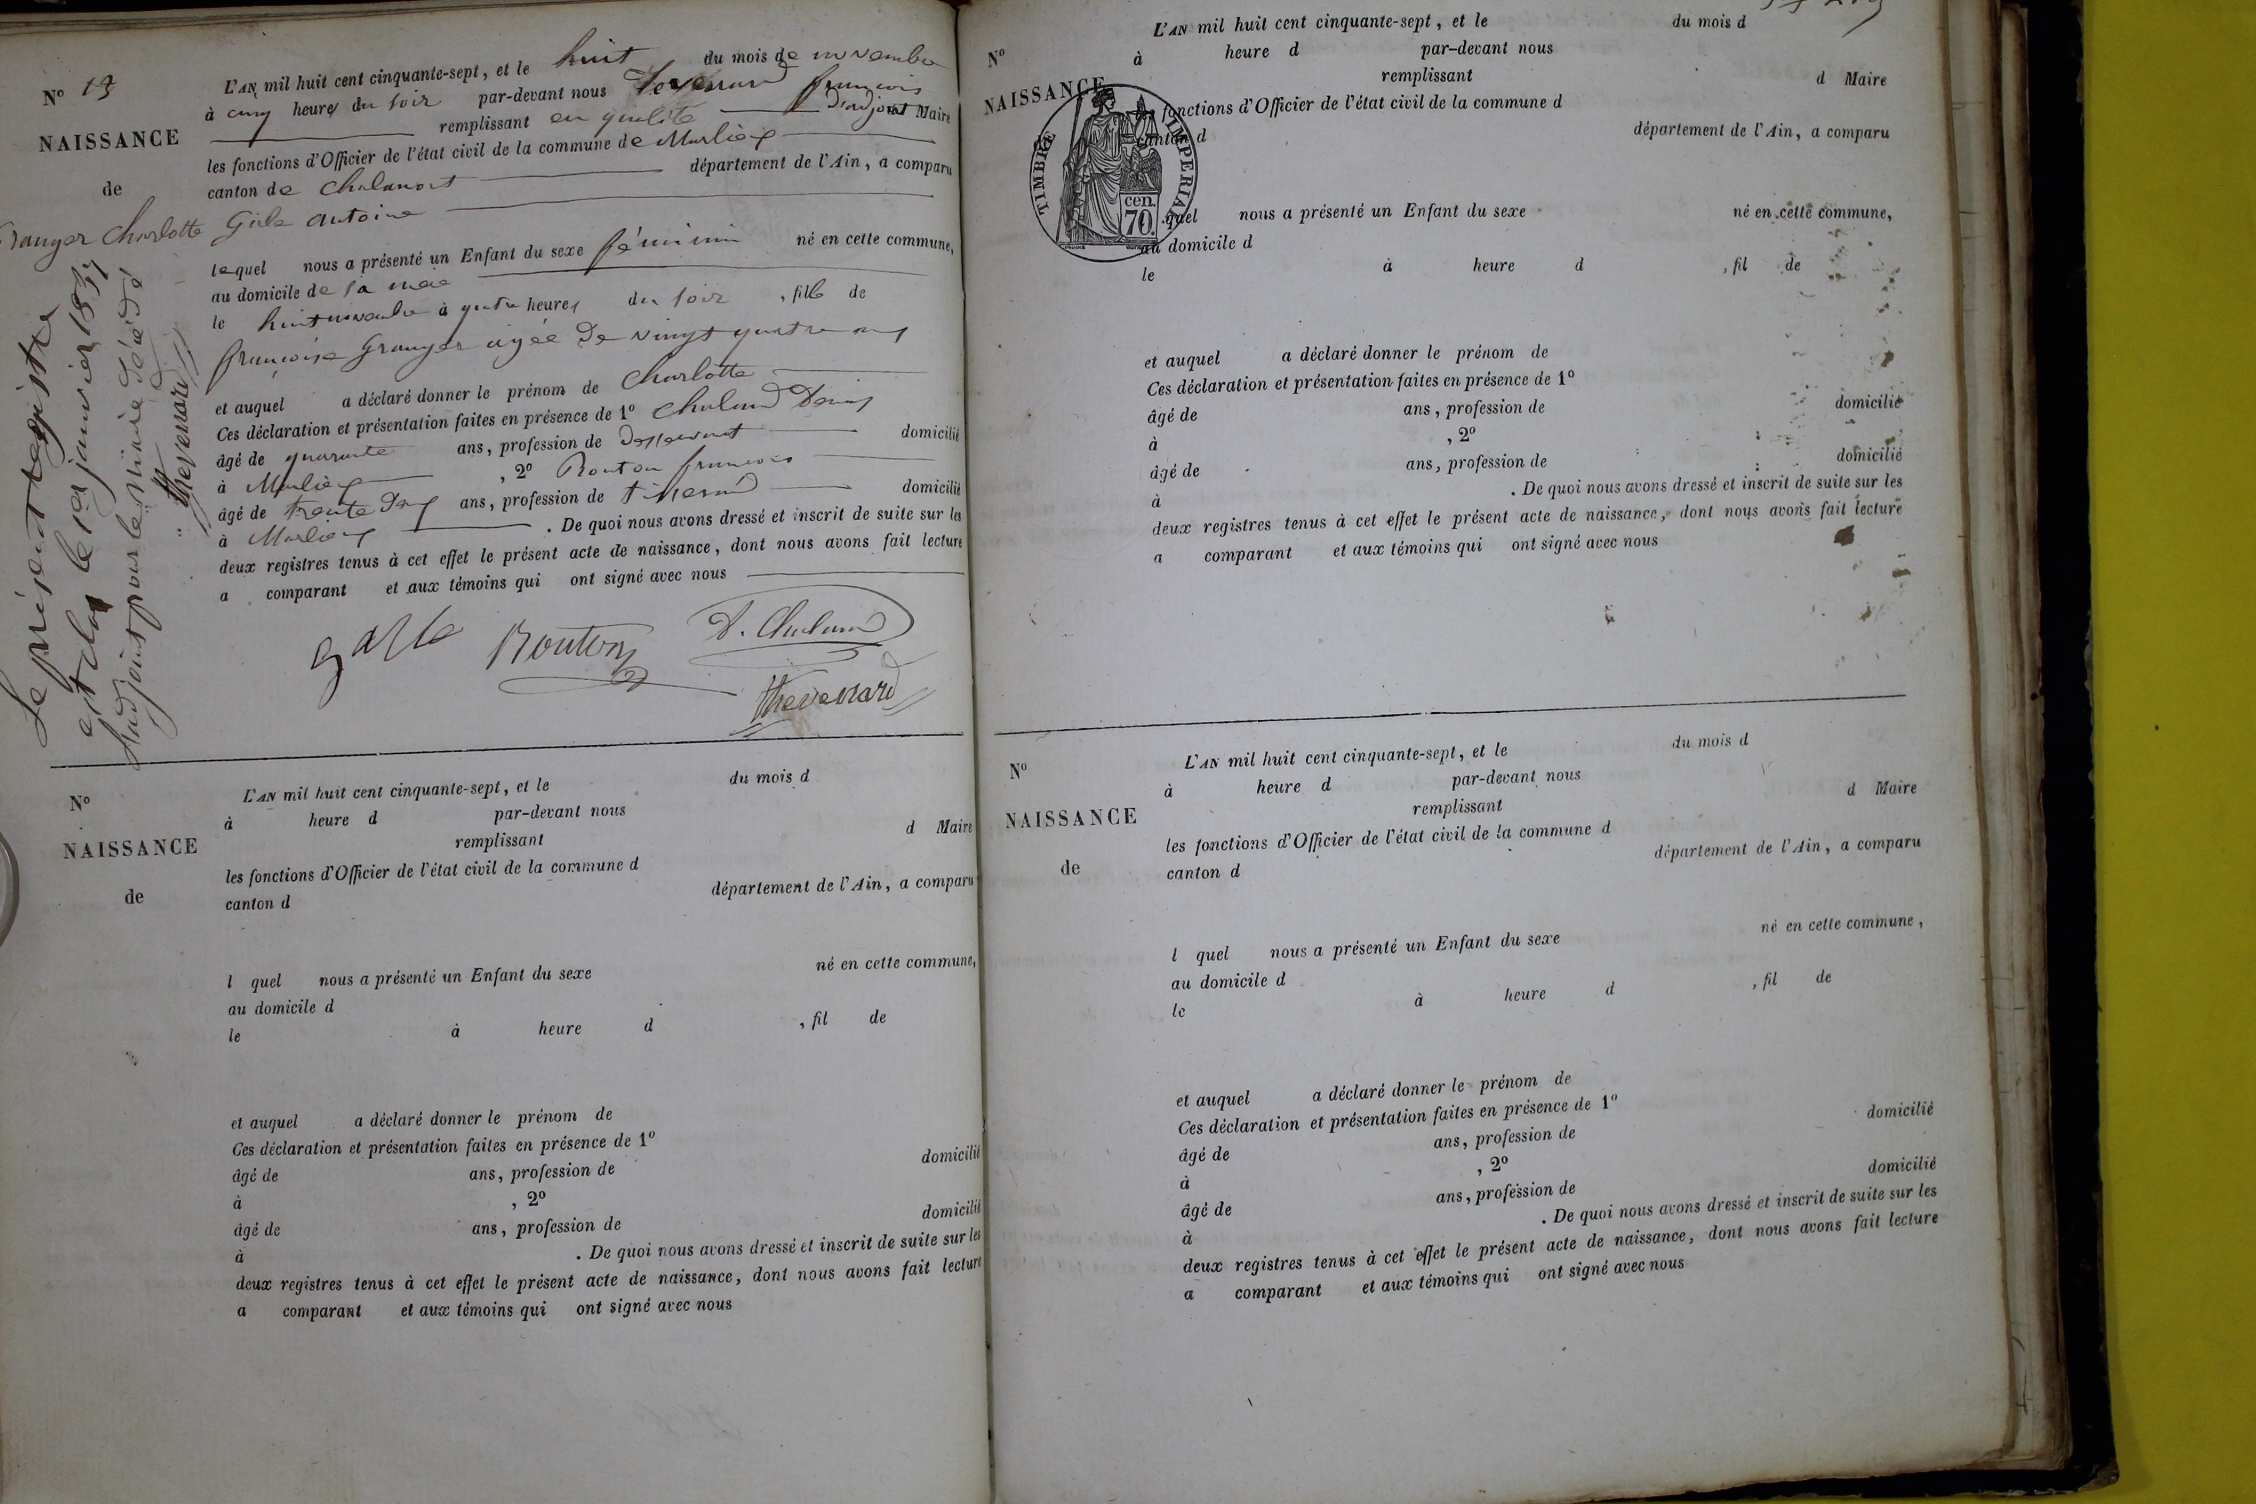 Nº 13
NAISSANCE
de
Granger Charlotte
L'AN mil huit cent cinquante-sept, et le huit du mois de novembre
à cinq heures du soir par-devant nous Thevenard françois
remplissant en qualité d'adjoint Maire
les fonctions d'Officier de l'état civil de la commune de Marlieux
canton de Chalamont département de l'Ain, a comparu
antoine
lequel nous a présenté un Enfant du sexe féminin né en cette commune,
au domicile de sa mère
le huit novembre à quatre heures du soir, fille de
françoise Granger agée de vingt quatre ans
et auquel a déclaré donner le prénom de Charlotte
Ces déclaration et présentation faites en présence de 1º Chaland Denis
âgé de quarante ans, profession de desservant domicilié
à Marlieux, 2º Bouton francois
âgé de trente deux ans, profession de tisserand domicilié
à Marlieux. De quoi nous avons dressé et inscrit de suite sur les
deux registres tenus à cet effet le présent acte de naissance, dont nous avons fait lecture
a comparant et aux témoins qui ont signé avec nous
Bouton D. Chaland
thevenard
Le présent registre
est clos le 1er janvier 1857
L'adjoint pour le maire décédé
thevenard
Nº
NAISSANCE
de
L'AN mil huit cent cinquante-sept, et le du mois d
à heure d par-devant nous
remplissant d Maire
les fonctions d'Officier de l'état civil de la commune d
canton d département de l'Ain, a comparu
l quel nous a présenté un Enfant du sexe né en cette commune,
au domicile d
le à heure d , fil de
et auquel a déclaré donner le prénom de
Ces déclaration et présentation faites en présence de 1º
âgé de ans, profession de domicilié
à , 2º
âgé de ans, profession de domicilié
à . De quoi nous avons dressé et inscrit de suite sur les
deux registres tenus à cet effet le présent acte de naissance, dont nous avons fait lecture
a comparant et aux témoins qui ont signé avec nous
Nº
NAISSANCE
TIMBRE IMPERIAL
cen.
70.
L'AN mil huit cent cinquante-sept, et le du mois d
à heure d par-devant nous
remplissant d Maire
fonctions d'Officier de l'état civil de la commune d
canton d département de l'Ain, a comparu
quel nous a présenté un Enfant du sexe né en cette commune,
au domicile d
le à heure d , fil de
et auquel a déclaré donner le prénom de
Ces déclaration et présentation faites en présence de 1º
âgé de ans, profession de domicilié
à , 2º
âgé de ans, profession de domicilié
à . De quoi nous avons dressé et inscrit de suite sur les
deux registres tenus à cet effet le présent acte de naissance, dont nous avons fait lecture
a comparant et aux témoins qui ont signé avec nous
Nº
NAISSANCE
de
L'AN mil huit cent cinquante-sept, et le du mois d
à heure d par-devant nous
remplissant d Maire
les fonctions d'Officier de l'état civil de la commune d
canton d département de l'Ain, a comparu
l quel nous a présenté un Enfant du sexe né en cette commune,
au domicile d
le à heure d , fil de
et auquel a déclaré donner le prénom de
Ces déclaration et présentation faites en présence de 1º
âgé de ans, profession de domicilié
à , 2º
âgé de ans, profession de domicilié
à . De quoi nous avons dressé et inscrit de suite sur les
deux registres tenus à cet effet le présent acte de naissance, dont nous avons fait lecture
a comparant et aux témoins qui ont signé avec nous